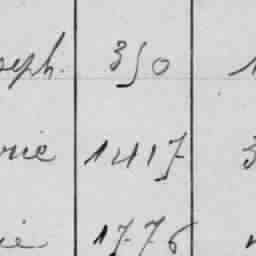 seph. 350 1
rie 1417 3
ie 1776